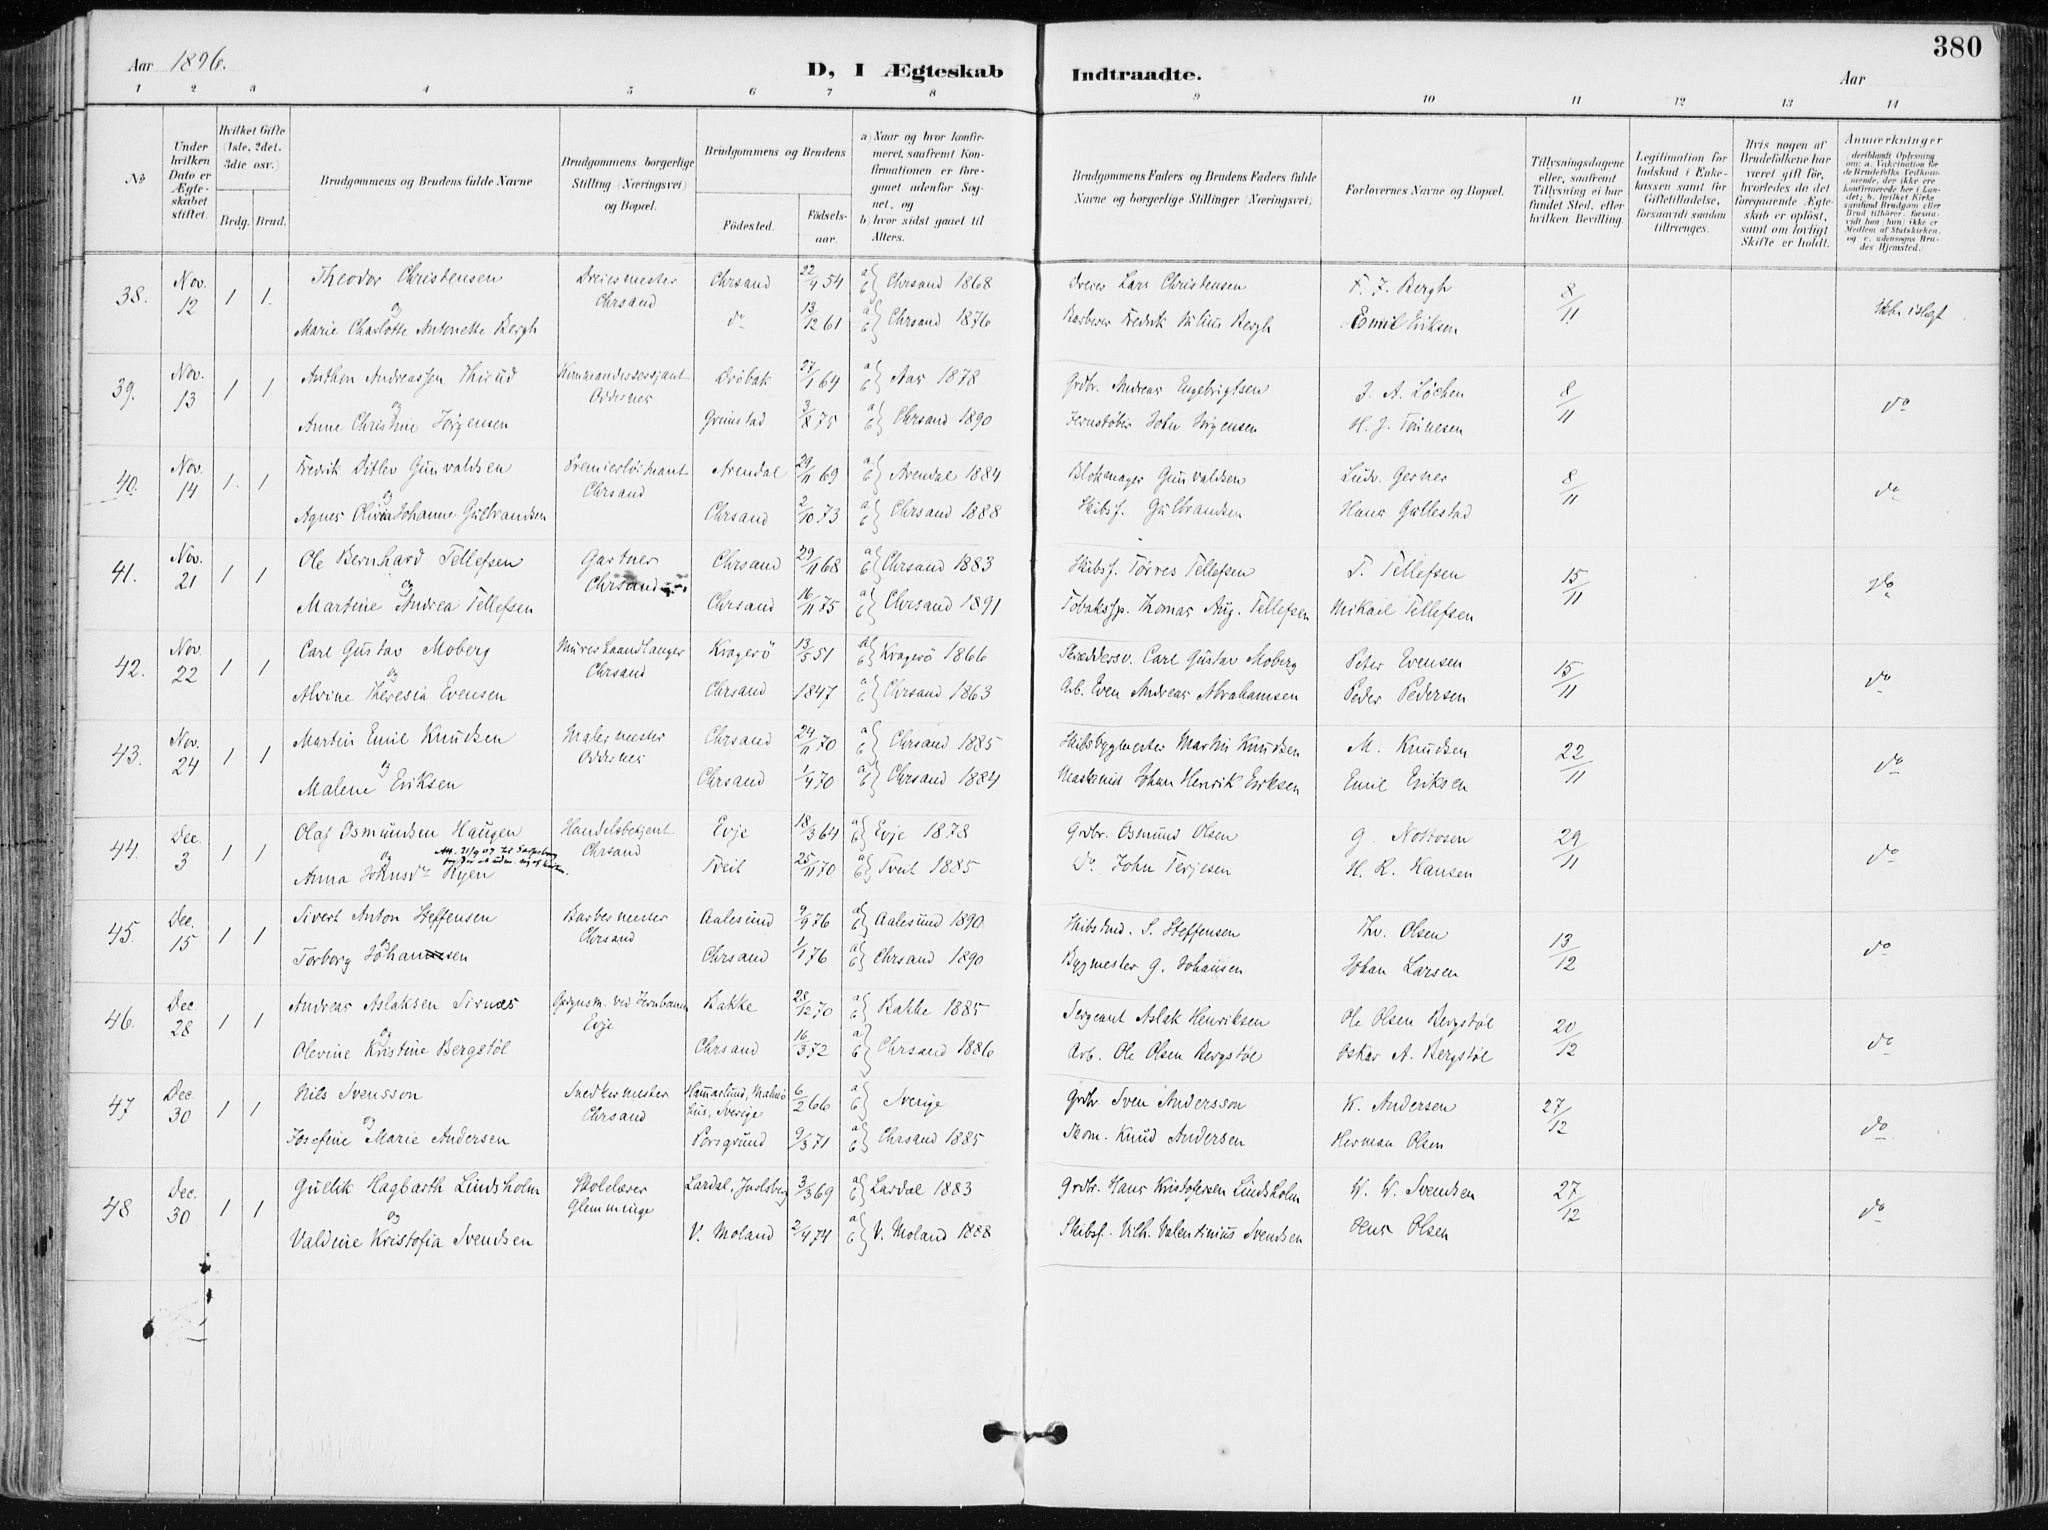 Aar 1896.
D, I Ægteskab Indtraadte.
Aar
380
1 2 3 4 5 6 7 8 9 10 11 12 13 14
No
Under hvilken Dato er Ægteskabet stiftet.
Hvilket Gifte (1ste, 2det, 3die osv.)
Brdg. Brud.
Brudgommens og Brudens fulde Navne
Brudgommens borgerlige Stilling (Næringsvei) og Bopæl.
Brudgommens og Brudens
Fødested.
Fødselsaar.
a) Naar og hvor konfirmeret, saafremt Konfirmationen er foregaaet udenfor Sognet, og
b) hvor sidst gaaet til Alters.
Brudgommens Faders og Brudens Faders fulde Navne og borgerlige Stillinger (Næringsvei)
Forlovernes Navne og Bopæl.
Tillysningsdagene eller, saafremt Tillysning ei har fundet Sted, efter hvilken Bevilling
Legitimation for Indskud i Enkekassen samt for Giftetilladelse, forsaavidt saadan tiltrænges.
Hvis nogen af Brudefolkene har været gift før, hvorledes da det foregaaende Ægteskab er opløst, samt om lovligt Skifte er holdt.
Anmærkninger
38. Nov. 12 1 1. Theodor Christensen Dreiermester Chrsand Chrsand 22/4 54 a b Chrsand 1868 Dreier Lars Christensen F. J. Bergh 8/11
og Marie Charlotte Antonette Bergh do 13/12 61 a b Chrsand 1876 Barberer Fredrik Julius Bergh Emil Eriksen
39. Nov. 13 1 1 Anthon Andreassen Thirud Kommandersersjant Oddernes Drøbak 27/1 64 a b Aas 1878 Grdbr. Andreas Engebrigtsen J. A. Løchen 8/11 do
og Anne Christine Jørgensen Grimstad 3/8 75 a b Chrsand 1890 Jernstøber John Jørgensen H. J. Tønnesen
40. Nov. 14 1. 1 Fredrik Ditlev Gunvaldsen Premierløitnant Chrsand Arendal 29/11 69 a b Arendal 1884 Blokmager Gunvaldsen Ludv. Gerner 8/11 do
og Agnes Olivia Johanne Gulbrandsen Chrsand 2/10 73 a b Chrsand 1888 Skibsf. Gulbrandsen Hans Gullestad
41. Nov. 21 1 1 Ole Bernhard Tellefsen Gartner Chrsand Chrsand 29/11 68 a b Chrsand 1883 Skibsf. Tørres Tellefsen T. Tellefsen 15/11 do
og Martine Andrea Tellefsen Chrsand 16/11 75 a b Chrsand 1891 Tobaksp. Thomas Aug. Tellefsen Mikail Tellefsen
42. Nov. 22 1 1 Carl Gustav Moberg Murerhaandlanger Chrsand Kragerö 13/5 51 a b Kragerö 1866 Skræddersv. Carl Gustav Moberg Peter Evensen 15/11 do
og Alvine Theresia Evensen Chrsand 1847 a b Chrsand 1863 Arb. Even Andreas Abrahamsen Peder Pedersen
43. Nov. 24 1 1 Martin Emil Knudsen Malermester Oddernes Chrsand 24/11 70 a b Chrsand 1885 Skibsbygmester Martin Knudsen M. Knudsen 22/11 do
og Malene Eriksen Chrsand 1/4 70 a b Chrsand 1884 Maskinist Johan Henrik Eriksen Emil Eriksen
44. Dec. 3 1 1 Olaf Osmundsen Haugen Handelsbetjent Chrsand Evje 18/3 64 a b Evje 1878 Grdbr. Osmund Olsen G. Nottosen 29/11 do
og Anna Johnsdr Ryen Tveit 25/11 70 a b Tveit 1885 Do John Terjesen H. R. Hansen
45. Dec. 15 1 1 Sivert Anton Steffensen Barbermester Chrsand Aalesund 9/9 76 a b Aalesund 1890 S. Steffensen Thv. Olsen 13/12 do
og Torborg Johansen Chrsand 1/1 76 a b Chrsand 1890 Bygmester G. Johansen Johan Larsen
46. Dec. 28 1 1 Andreas Aslaksen Sirnæs ved Jernbanen Evje Bakke 28/12 70 a b Bakke 1885 Sergeant Aslak Henriksen Ole Olsen Bergstøl 20/12 do
og Olevine Kristine Bergstøl Chrsand 16/3 72 a b Chrsand 1886 Arb. Ole Olsen Bergstøl Oskar A. Bergstøl
47 Dec. 30 1 1 Nils Svensson Snedkermester Chrsand Hamarlund, Malmö Lus, Sverige 6/2 66 a b Sverige Grdbr. Sven Andersson K. Andersen 27/12 do
og Josefine Marie Andersen Porsgrund 9/3 71 a b Chrsand 1885 Skom. Knud Andersen Herman Olsen
48. Dec. 30 1 1 Gullik Hagbarth Lindsholm Skolelærer Glemminge Lardal, Jarlsberg 3/3 69 a b Lardal 1883 Grdbr. Hans Kristofersen Lindsholm W. W. Svendsen 27/12 do
og Valdine Kristofia Svendsen V. Moland 2/4 74 a b V. Moland 1888 Skibsf. Vilh. Valentinius Svendsen Jens Olsen